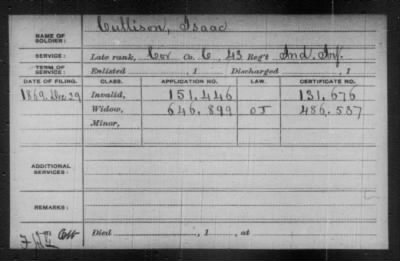 NAME OF SOLDIER: Cullison, Isaac
SERVICE: Late rank, Cor Co. C, 43 Reg't Ind. Inf.
TERM OF SERVICE: Enlisted , 1 Discharged , 1
DATE OF FILING. CLASS. APPLICATION NO. LAW. CERTIFICATE NO.
1869. Dec. 29 Invalid, 151.446 131.676
Widow, 646.899 OJ 486.537
Minor,
ADDITIONAL SERVICES:
REMARKS:
Died , 1 , at